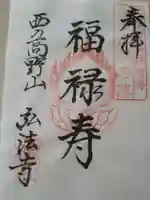 奉拝
福禄寿
西の高野山
弘法寺